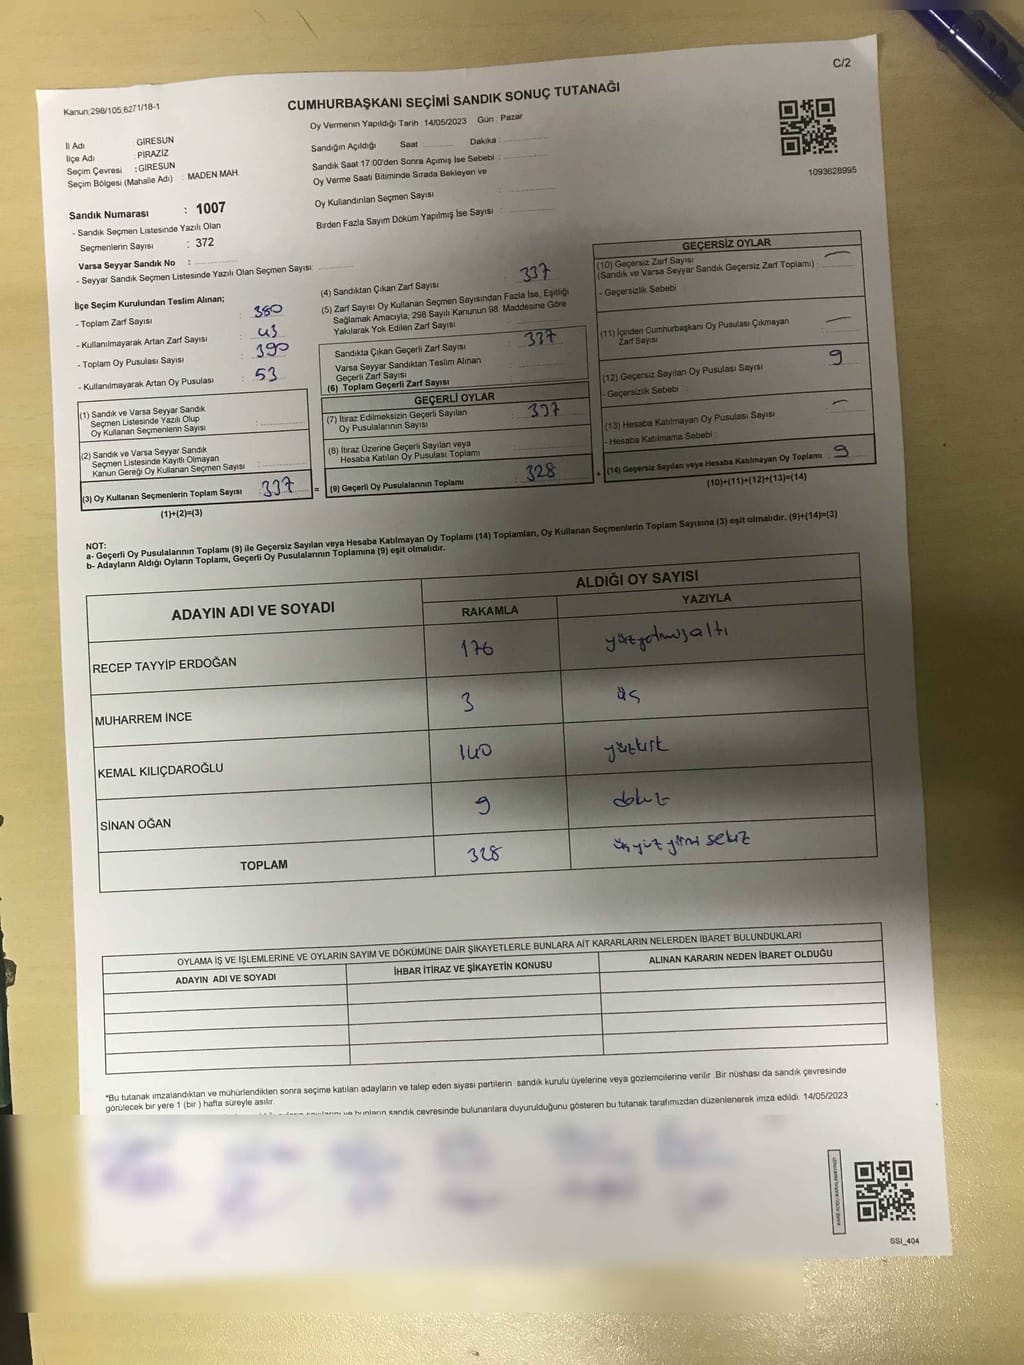 C/2
Kanun;298/105,6271/18-1
CUMHURBAŞKANI SEÇİMİ SANDIK SONUÇ TUTANAĞI
İl Adı GİRESUN
İlçe Adı : PİRAZİZ
Seçim Çevresi : GİRESUN
Seçim Bölgesi (Mahalle Adı) : MADEN MAH.
Sandık Numarası : 1007
- Sandık Seçmen Listesinde Yazılı Olan
Seçmenlerin Sayısı : 372
Varsa Seyyar Sandık No :
- Seyyar Sandık Seçmen Listesinde Yazılı Olan Seçmen Sayısı:
Oy Vermenin Yapıldığı Tarih : 14/05/2023 Gün : Pazar
Sandığın Açıldığı Saat : Dakika :
Sandık Saat 17:00'den Sonra Açımış İse Sebebi :
Oy Verme Saati Bitiminde Sırada Bekleyen ve
Oy Kullandırılan Seçmen Sayısı :
Birden Fazla Sayım Döküm Yapılmış İse Sayısı :
1093628995
İlçe Seçim Kurulundan Teslim Alınan;
- Toplam Zarf Sayısı : 380
- Kullanılmayarak Artan Zarf Sayısı : 43
- Toplam Oy Pusulası Sayısı : 390
- Kullanılmayarak Artan Oy Pusulası : 53
(1) Sandık ve Varsa Seyyar Sandık
Seçmen Listesinde Yazılı Olup
Oy Kullanan Seçmenlerin Sayısı :
(2) Sandık ve Varsa Seyyar Sandık
Seçmen Listesinde Kayıtlı Olmayan
Kanun Gereği Oy Kullanan Seçmen Sayısı :
(3) Oy Kullanan Seçmenlerin Toplam Sayısı : 337
(1)+(2)=(3)
(4) Sandıktan Çıkan Zarf Sayısı : 337
(5) Zarf Sayısı Oy Kullanan Seçmen Sayısından Fazla İse, Eşitliği
Sağlamak Amacıyla, 298 Sayılı Kanunun 98. Maddesine Göre
Yakılarak Yok Edilen Zarf Sayısı :
Sandıkta Çıkan Geçerli Zarf Sayısı : 337
Varsa Seyyar Sandıktan Teslim Alınan
Geçerli Zarf Sayısı :
(6) Toplam Geçerli Zarf Sayısı :
GEÇERLİ OYLAR
(7) İtiraz Edilmeksizin Geçerli Sayılan
Oy Pusulalarının Sayısı : 337
(8) İtiraz Üzerine Geçerli Sayılan veya
Hesaba Katılan Oy Pusulası Toplamı :
= (9) Geçerli Oy Pusulalarının Toplamı : 328
GEÇERSİZ OYLAR
(10) Geçersiz Zarf Sayısı
(Sandık ve Varsa Seyyar Sandık Geçersiz Zarf Toplamı) : —
- Geçersizlik Sebebi
(11) İçinden Cumhurbaşkanı Oy Pusulası Çıkmayan
Zarf Sayısı : —
(12) Geçersiz Sayılan Oy Pusulası Sayısı : 9
- Geçersizlik Sebebi :
(13) Hesaba Katılmayan Oy Pusulası Sayısı : —
- Hesaba Katılmama Sebebi :
+ (14) Geçersiz Sayılan veya Hesaba Katılmayan Oy Toplamı : 9
(10)+(11)+(12)+(13)=(14)
NOT:
a- Geçerli Oy Pusulalarının Toplamı (9) ile Geçersiz Sayılan veya Hesaba Katılmayan Oy Toplamı (14) Toplamları, Oy Kullanan Seçmenlerin Toplam Sayısına (3) eşit olmalıdır. (9)+(14)=(3)
b- Adayların Aldığı Oyların Toplamı, Geçerli Oy Pusulalarının Toplamına (9) eşit olmalıdır.
ADAYIN ADI VE SOYADI
ALDIĞI OY SAYISI
RAKAMLA YAZIYLA
RECEP TAYYİP ERDOĞAN 176 yüzyetmişaltı
MUHARREM İNCE 3 üç
KEMAL KILIÇDAROĞLU 140 yüzkırk
SİNAN OĞAN 9 dokuz
TOPLAM 328 üçyüz yirmi sekiz
OYLAMA İŞ VE İŞLEMLERİNE VE OYLARIN SAYIM VE DÖKÜMÜNE DAİR ŞİKAYETLERLE BUNLARA AİT KARARLARIN NELERDEN İBARET BULUNDUKLARI
ADAYIN ADI VE SOYADI İHBAR İTİRAZ VE ŞİKAYETİN KONUSU ALINAN KARARIN NEDEN İBARET OLDUĞU
*Bu tutanak imzalandıktan ve mühürlendikten sonra seçime katılan adayların ve talep eden siyasi partilerin sandık kurulu üyelerine veya gözlemcilerine verilir .Bir nüshası da sandık çevresinde
görülecek bir yere 1 (bir ) hafta süreyle asılır.
ve bunların sandık çevresinde bulunanlara duyurulduğunu gösteren bu tutanak tarafımızdan düzenlenerek imza edildi. 14/05/2023
SSİ_404